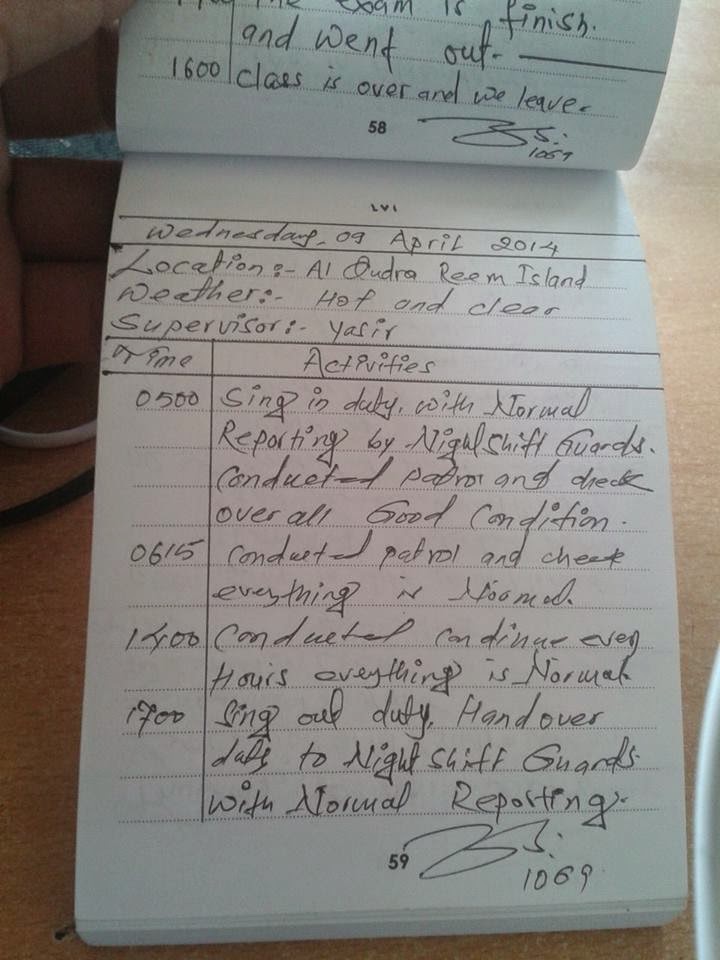 exam is finish.
and went out.
1600 class is over and we leave.
58
1069
Wednesday, 09 April 2014
Location:- Al Qudra Reem Island
Weather:- Hot and clear
Supervisor:- Yasir
Time Activities
0500 Sing in duty. with Normal
Reporting by Night Shift Guards.
Conducted patrol and check
over all Good Condition.
0615 Conducted patrol and check
everything is Normal.
1400 Conducted condinue every
Hours everything is Normal.
1700 Sing out duty. Handover
duty to Night Shift Guards
with Normal Reporting:-
59
1069